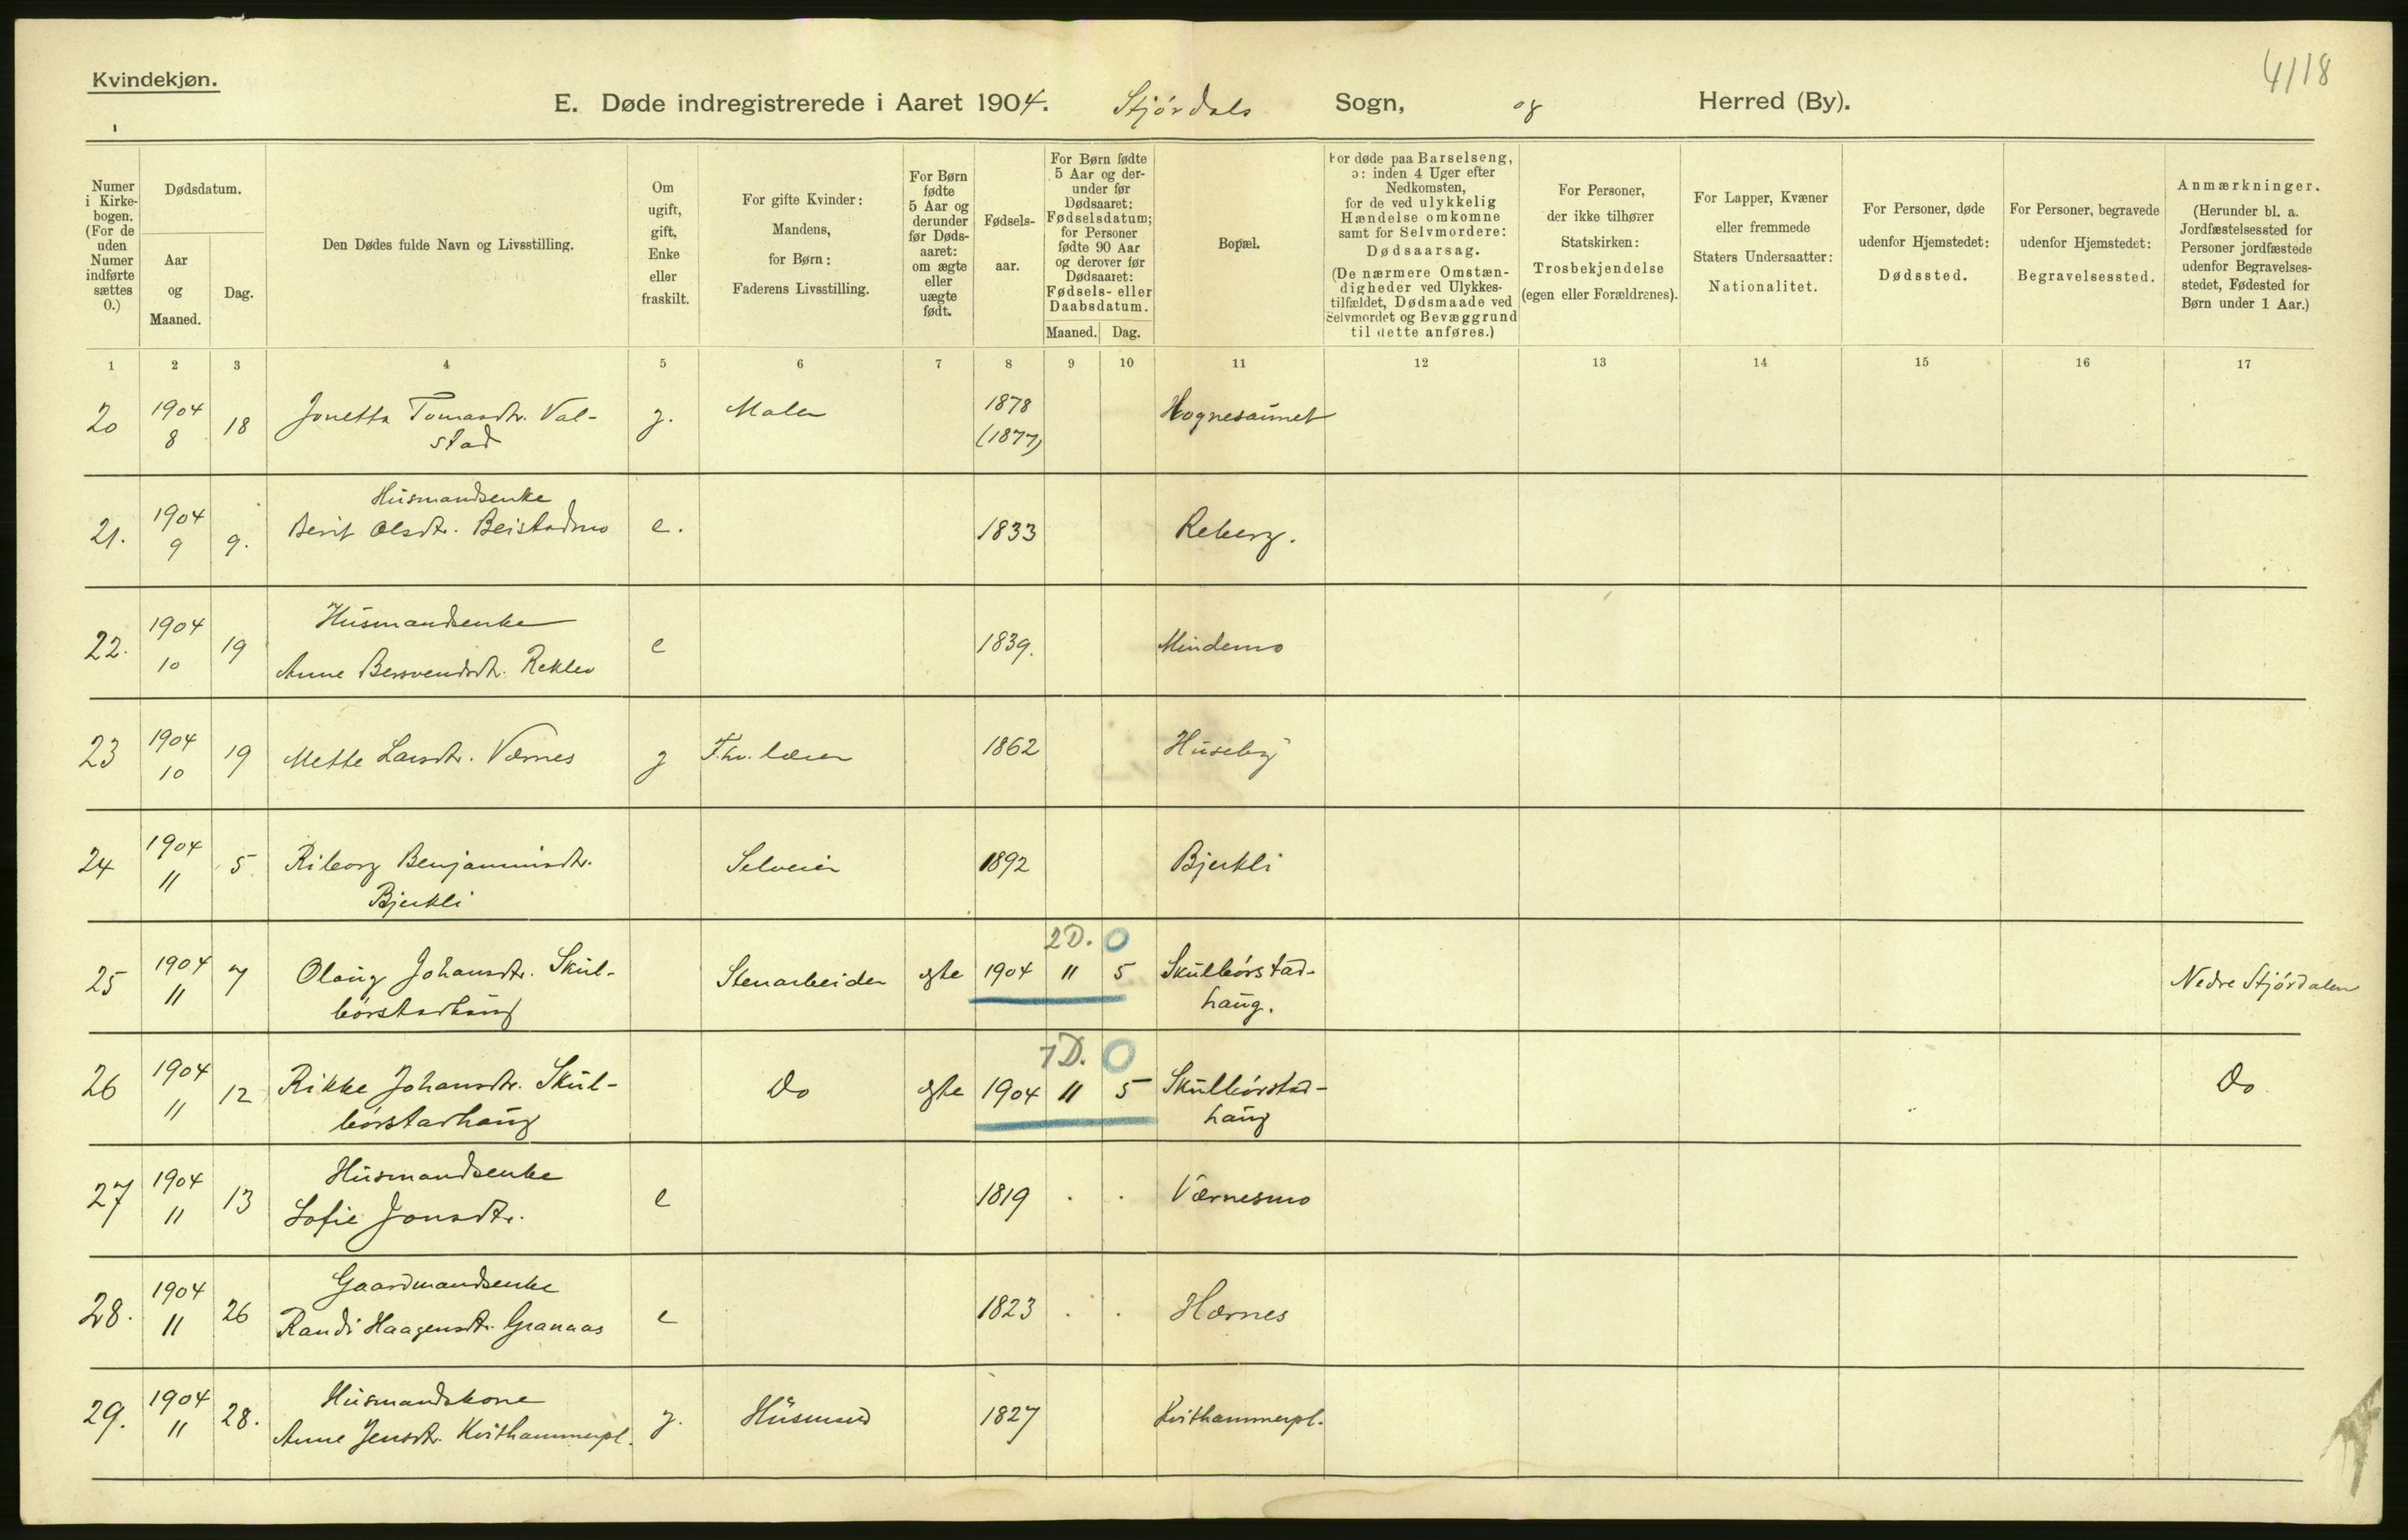 Kvindekjøn.
4/18
E. Døde indregistrerede i Aaret 1904. Stjørdals Sogn, og Herred (By).
Numer i Kirkebogen. (For de uden Numer indførte sættes 0.)
Dødsdatum.
Aar og Maaned.
Dag.
Den Dødes fulde Navn og Livsstilling.
Om ugift, gift, Enke eller fraskilt.
For gifte Kvinder: Mandens, for Børn: Faderens Livsstilling.
For Børn fødte 5 Aar og derunder før Dødsaaret: om ægte eller uægte født.
Fødselsaar.
For Børn fødte 5 Aar og derunder før Dødsaaret: Fødselsdatum; for Personer fødte 90 Aar og derover før Dødsaaret: Fødsels- eller Daabsdatum.
Maaned. Dag.
Bopæl.
For døde paa Barselseng, ɔ: inden 4 Uger efter Nedkomsten, for de ved ulykkelig Hændelse omkomne samt for Selvmordere: Dødsaarsag. (De nærmere Omstændigheder ved Ulykkestilfældet, Dødsmaade ved Selvmordet og Bevæggrund til dette anføres.)
For Personer, der ikke tilhører Statskirken: Trosbekjendelse (egen eller Forældrenes).
For Lapper, Kvæner eller fremmede Staters Undersaatter: Nationalitet.
For Personer, døde udenfor Hjemstedet: Dødssted.
For Personer, begravede udenfor Hjemstedet: Begravelsessted.
Anmærkninger. (Herunder bl. a. Jordfæstelsessted for Personer jordfæstede udenfor Begravelsesstedet, Fødested for Børn under 1 Aar.)
1 2 3 4 5 6 7 8 9 10 11 12 13 14 15 16 17
20 1904 8 18 Jonetta Tomasdtr. Val-
stad g. Maler 1878 (1877) Hognesaunet
Husmandsenke
21. 1904 9 9. Berit Olsdtr. Beistadmo e. 1833 Reberg.
Husmandsenke
22. 1904 10 19 Anne Bersvendsdtr. Reklev e 1839. Mindemo
23 1904 10 19 Mette Larsdtr. Værnes g F.hv. lærer 1862 Huseby
24 1904 11 5 Riborg Benjaminsdtr.
Bjerkli Selveier 1892 Bjerkli
2 D. 0
25 1904 11 7 Olaug Johansdtr. Skul-
børstadhaug Stenarbeider egte 1904 11 5 Skulbørstad-
haug. Nedre Stjørdalen
7 D. 0
26 1904 11 12 Rikke Johansdtr. Skul-
børstadhaug Do egte 1904 11 5 Skulbørstad-
haug Do
Husmandsenke
27 1904 11 13 Sofie Jonsdtr. e 1819 . . Værnesmo
Gaardmandsenke
28. 1904 11 26 Randi Haagensdtr. Granaas e 1823 . . Hærnes
Husmandskone
29. 1904 11 28. Anne Jensdtr. Kvithammerpl. g. Husmand 1827 Kvithammerpl.